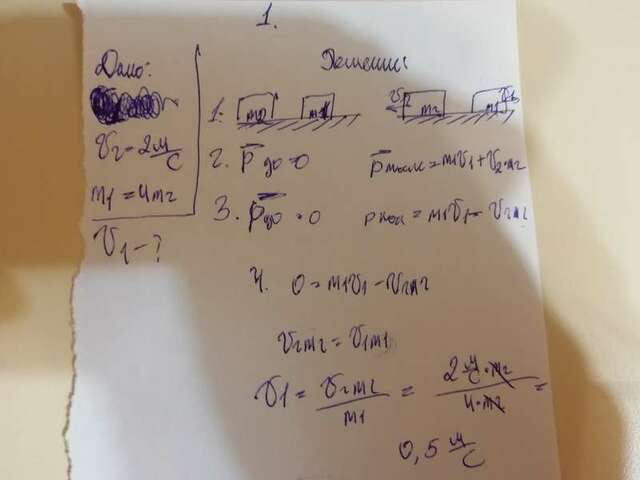 1.
Дано:
v₂ = 2 м/с
m₁ = 4m₂
v₁ - ?
Решение:
1. m₂ m₁ v₂ m₂ m₁ v₁
2. p⃗ до = 0 p⃗ после = m₁v₁ + v₂ · m₂
3. p⃗ до = 0 = m₁v₁ - v₂m₂
4. 0 = m₁v₁ - v₂m₂
v₂m₂ = v₁m₁
v₁ = v₂m₂/m₁ = 2 м/с · m₂/4 · m₂ =
0,5 м/с